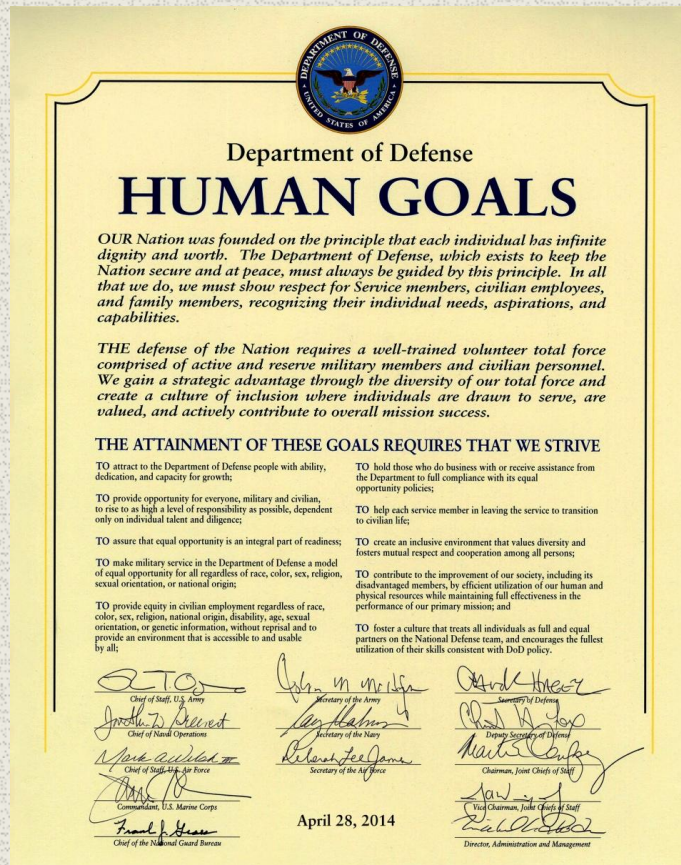 DEPARTMENT OF DEFENSE
UNITED STATES OF AMERICA
Department of Defense
HUMAN GOALS
OUR Nation was founded on the principle that each individual has infinite
dignity and worth. The Department of Defense, which exists to keep the
Nation secure and at peace, must always be guided by this principle. In all
that we do, we must show respect for Service members, civilian employees,
and family members, recognizing their individual needs, aspirations, and
capabilities.
THE defense of the Nation requires a well-trained volunteer total force
comprised of active and reserve military members and civilian personnel.
We gain a strategic advantage through the diversity of our total force and
create a culture of inclusion where individuals are drawn to serve, are
valued, and actively contribute to overall mission success.
THE ATTAINMENT OF THESE GOALS REQUIRES THAT WE STRIVE
TO attract to the Department of Defense people with ability,
dedication, and capacity for growth;
TO provide opportunity for everyone, military and civilian,
to rise to as high a level of responsibility as possible, dependent
only on individual talent and diligence;
TO assure that equal opportunity is an integral part of readiness;
TO make military service in the Department of Defense a model
of equal opportunity for all regardless of race, color, sex, religion,
sexual orientation, or national origin;
TO provide equity in civilian employment regardless of race,
color, sex, religion, national origin, disability, age, sexual
orientation, or genetic information, without reprisal and to
provide an environment that is accessible to and usable
by all;
TO hold those who do business with or receive assistance from
the Department to full compliance with its equal
opportunity policies;
TO help each service member in leaving the service to transition
to civilian life;
TO create an inclusive environment that values diversity and
fosters mutual respect and cooperation among all persons;
TO contribute to the improvement of our society, including its
disadvantaged members, by efficient utilization of our human and
physical resources while maintaining full effectiveness in the
performance of our primary mission; and
TO foster a culture that treats all individuals as full and equal
partners on the National Defense team, and encourages the fullest
utilization of their skills consistent with DoD policy.
Chief of Staff, U.S. Army
Chief of Naval Operations
Chief of Staff, U.S. Air Force
Commandant, U.S. Marine Corps
Chief of the National Guard Bureau
Secretary of the Army
Secretary of the Navy
Deborah Lee James
Secretary of the Air Force
April 28, 2014
Secretary of Defense
Deputy Secretary of Defense
Chairman, Joint Chiefs of Staff
Vice Chairman, Joint Chiefs of Staff
Director, Administration and Management